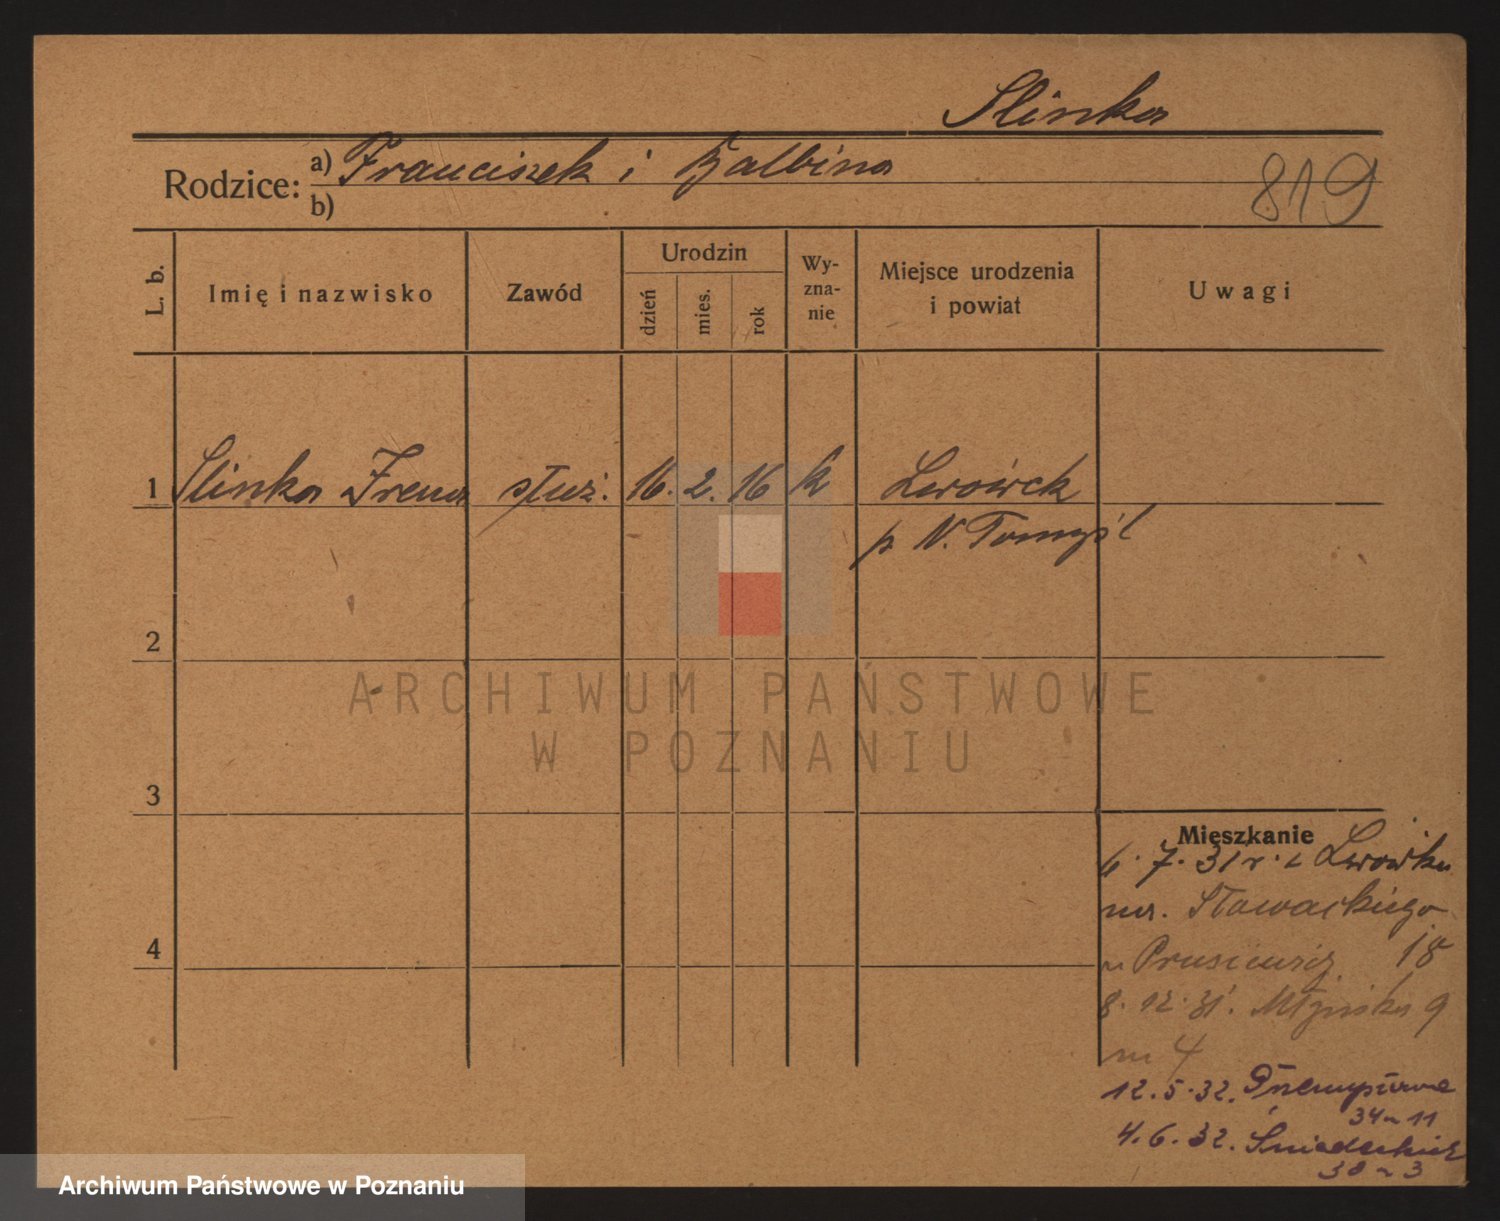 Slinka
Rodzice: a) Franciszek i Balbina
b)
819
L. b.
Imię i nazwisko
Zawód
Urodzin
dzień
mies.
rok
Wy-
zna-
nie
Miejsce urodzenia
i powiat
Uwagi
1 Slinka Irena służ. 16. 2. 16 k Lwówek
p N. Tomyśl
2
ARCHIWUM PAŃSTWOWE
W POZNANIU
3
Mieszkanie
6. 7. 31 r. z Lwówka
Słowackiego
18
4
8. 12. 31. 9
m 4
12. 5. 32.
34 11
4. 6. 32. Śniadeckich
30 3
Archiwum Państwowe w Poznaniu